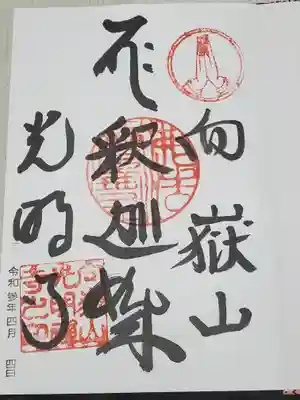 向嶽山
釈迦如来
光明寺
令和参年四月 四日